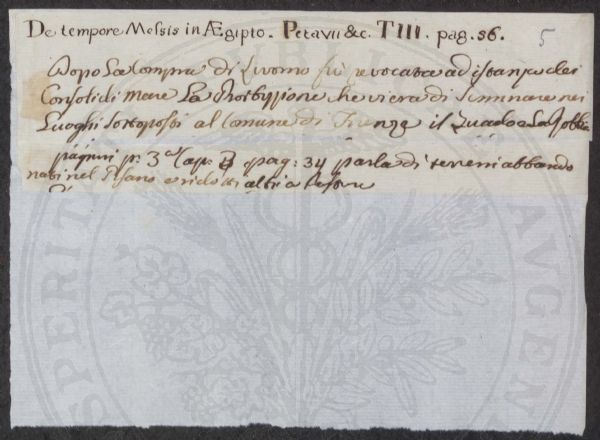 De tempore Messis in Ægipto. Petavii &c. T III. pag. 56. 5
Dopo La Compra di Livorno fu revocata ad istanza dei
Consoli di Mare La Proibizione che vi era di seminare nei
Luoghi sottoposti al Comune di Firenze il Guado e La Robbia
pagnini p: 3 pag: 34 parla di terreni abbando
nati nel Pisano e ridotti
PROSPERITAS AUGENS